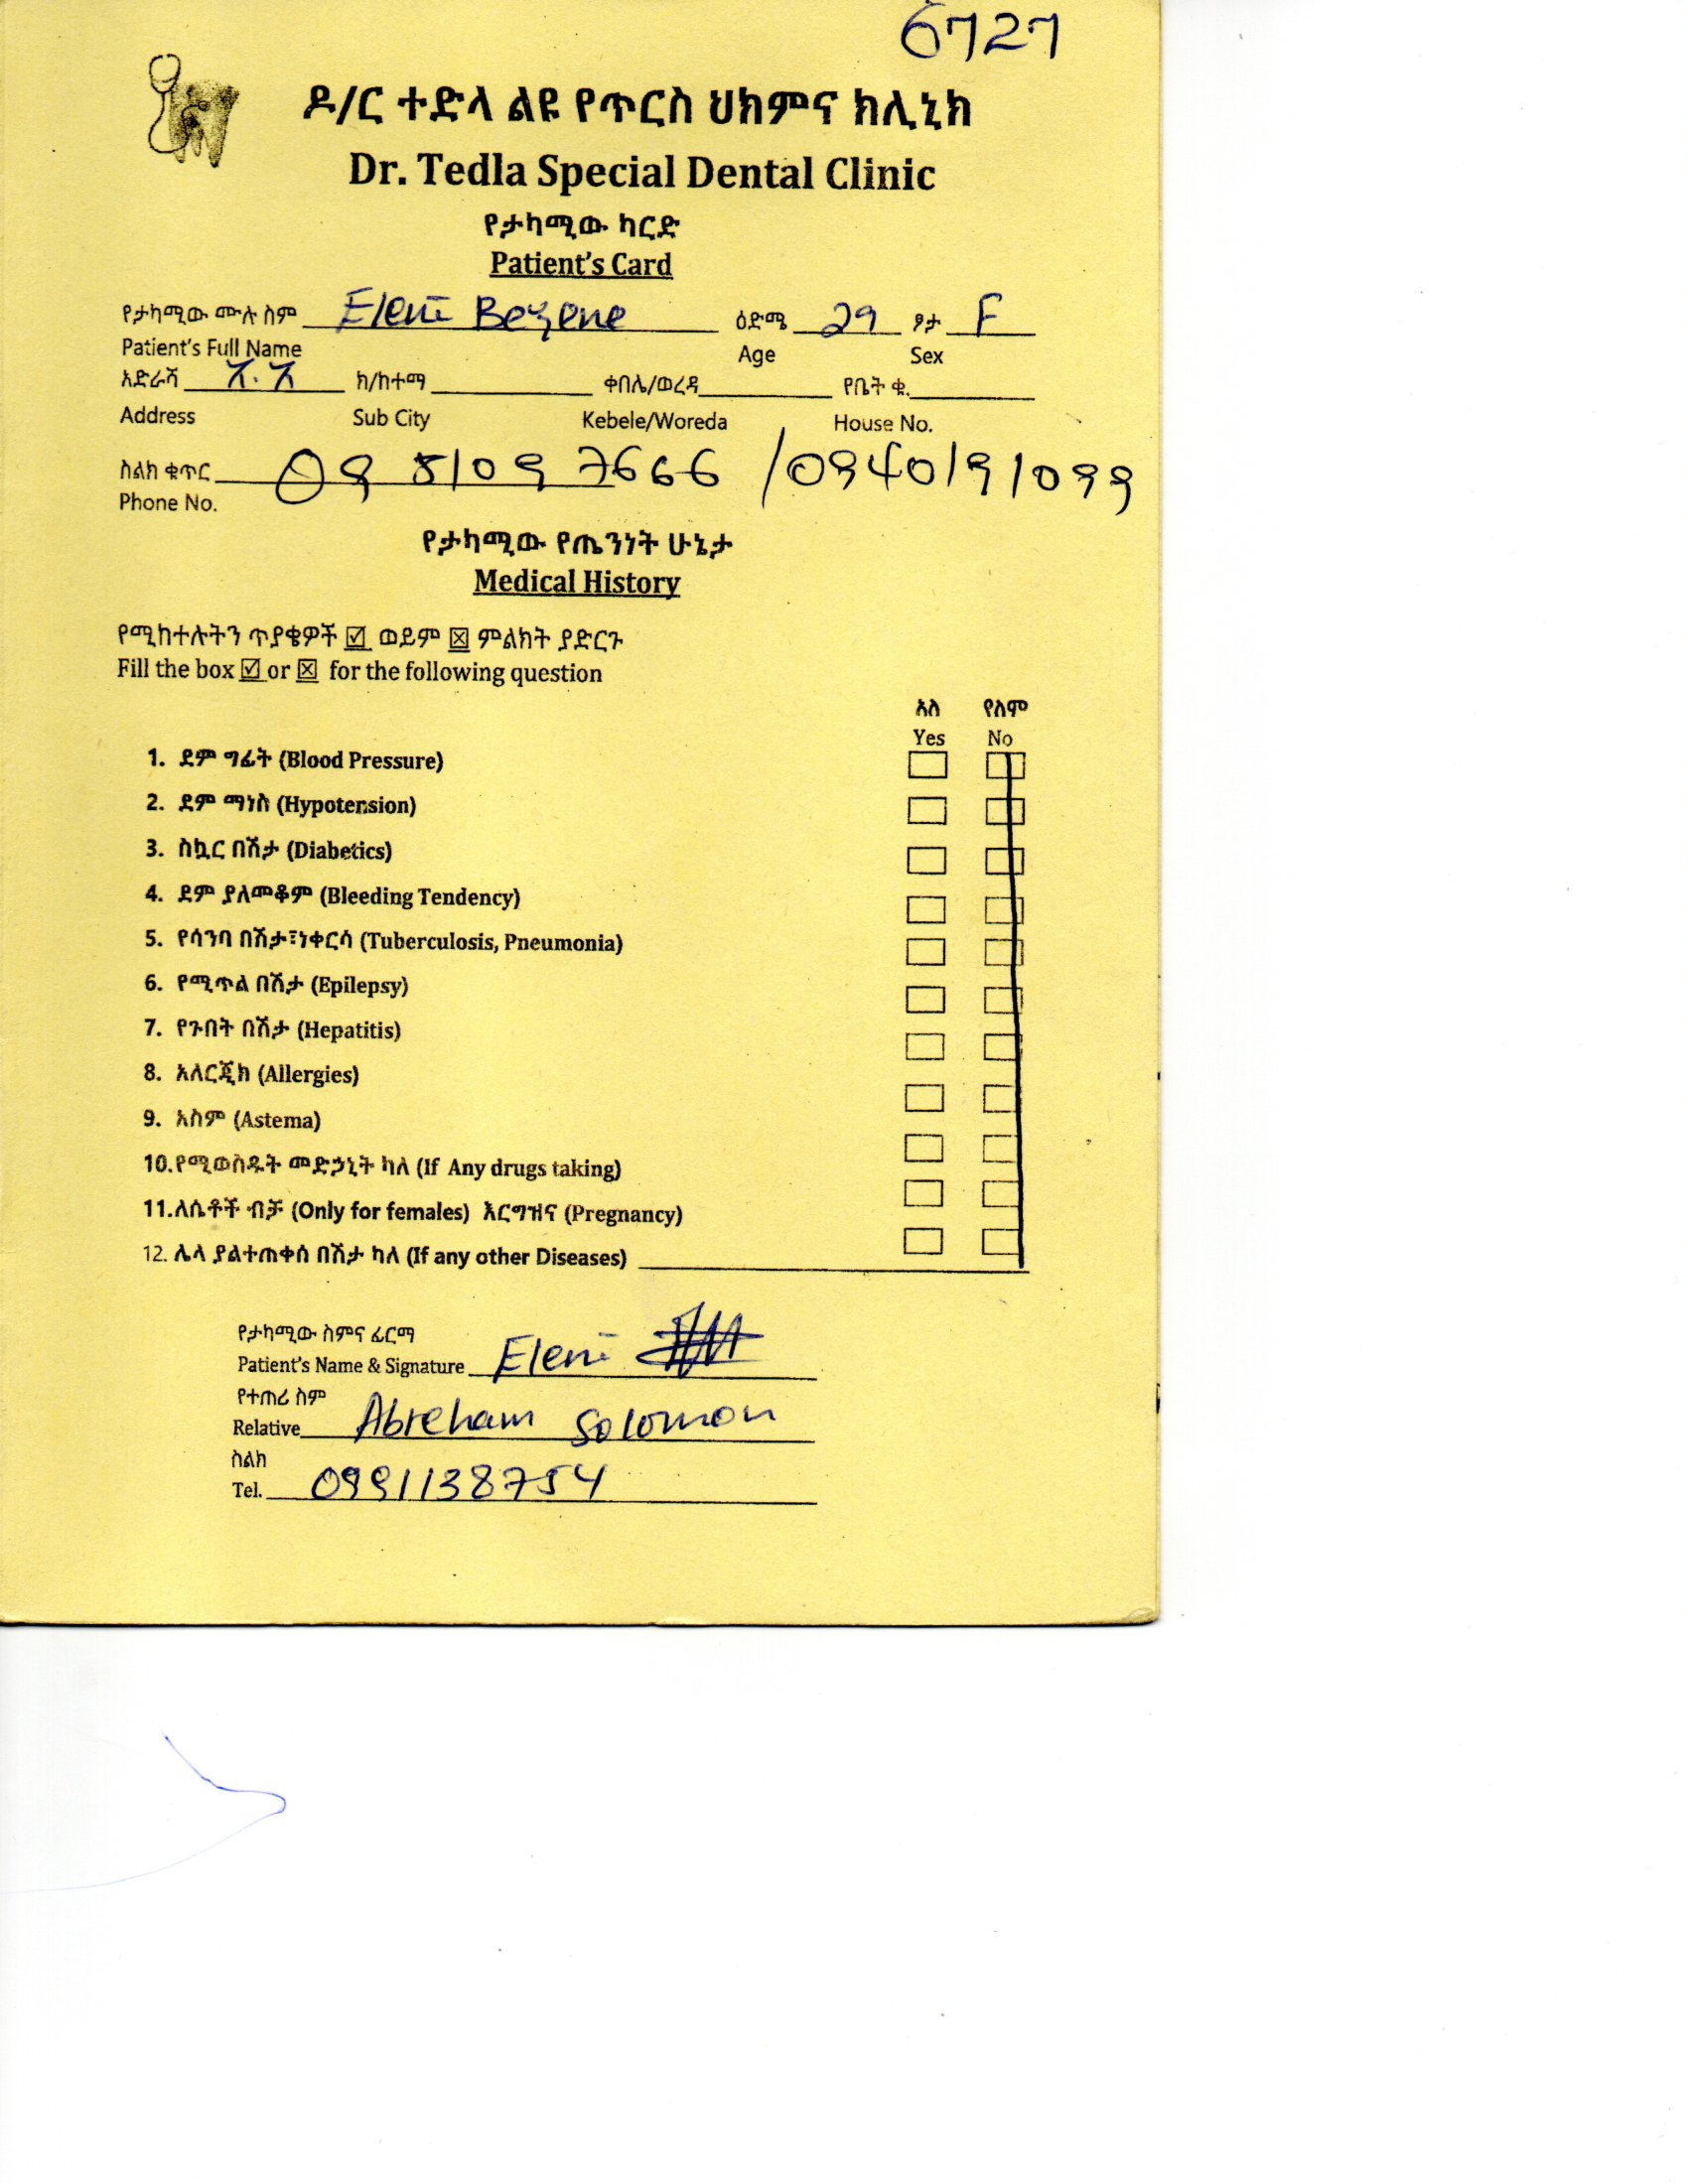 6727
ዶ/ር ተድላ ልዩ የጥርስ ህክምና ክሊኒክ
Dr. Tedla Special Dental Clinic
የታካሚው ካርድ
Patient's Card
የታካሚው ሙሉ ስም Eleni Bezene ዕድሜ 29 ፆታ F
Patient's Full Name Age Sex
አድራሻ አ.አ ክ/ከተማ ቀበሌ/ወረዳ የቤት ቁ.
Address Sub City Kebele/Woreda House No.
ስልክ ቁጥር 0981097666 /0940191099
Phone No.
የታካሚው የጤንነት ሁኔታ
Medical History
የሚከተሉትን ጥያቄዎች ☑ ወይም ☒ ምልክት ያድርጉ
Fill the box ☑ or ☒ for the following question
አለ የለም
Yes No
1. ደም ግፊት (Blood Pressure)
2. ደም ማነስ (Hypotension)
3. ስኳር በሽታ (Diabetics)
4. ደም ያለመቆም (Bleeding Tendency)
5. የሳንባ በሽታ፣ነቀርሳ (Tuberculosis, Pneumonia)
6. የሚጥል በሽታ (Epilepsy)
7. የጉበት በሽታ (Hepatitis)
8. አለርጂክ (Allergies)
9. አስም (Astema)
10.የሚወስዱት መድኃኒት ካለ (If Any drugs taking)
11.ለሴቶች ብቻ (Only for females) እርግዝና (Pregnancy)
12. ሌላ ያልተጠቀሰ በሽታ ካለ (If any other Diseases)
የታካሚው ስምና ፊርማ
Patient's Name & Signature Eleni
የተጠሪ ስም
Relative Abreham Solomon
ስልክ
Tel. 0991138754